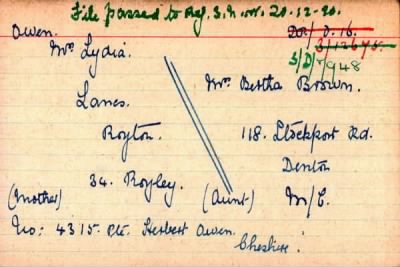 File passed to Reg. S.N.W. 20.12.20.
Owen.
DR/ O. 16.
3/12675.
S/D/7948
Mrs Lydia.
Mrs Bertha Brown.
Lanes.
Royton.
118. Stockport Rd.
Denton
34. Royley.
(Mother)
(Aunt)
M/C.
No: 4315. Pte. Herbert Owen.
Cheshire.